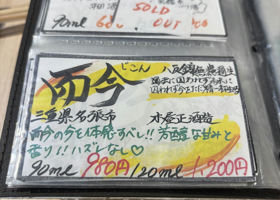 SOLD
90ml 680. OUT
じこん
而今
八反錦 無濾過生
三重県名張市 木屋正酒造
而今の今を体感すべし!! 芳醇な甘みと
香り!! ハズレなし♡
90ml 980円 120ml 1,200円